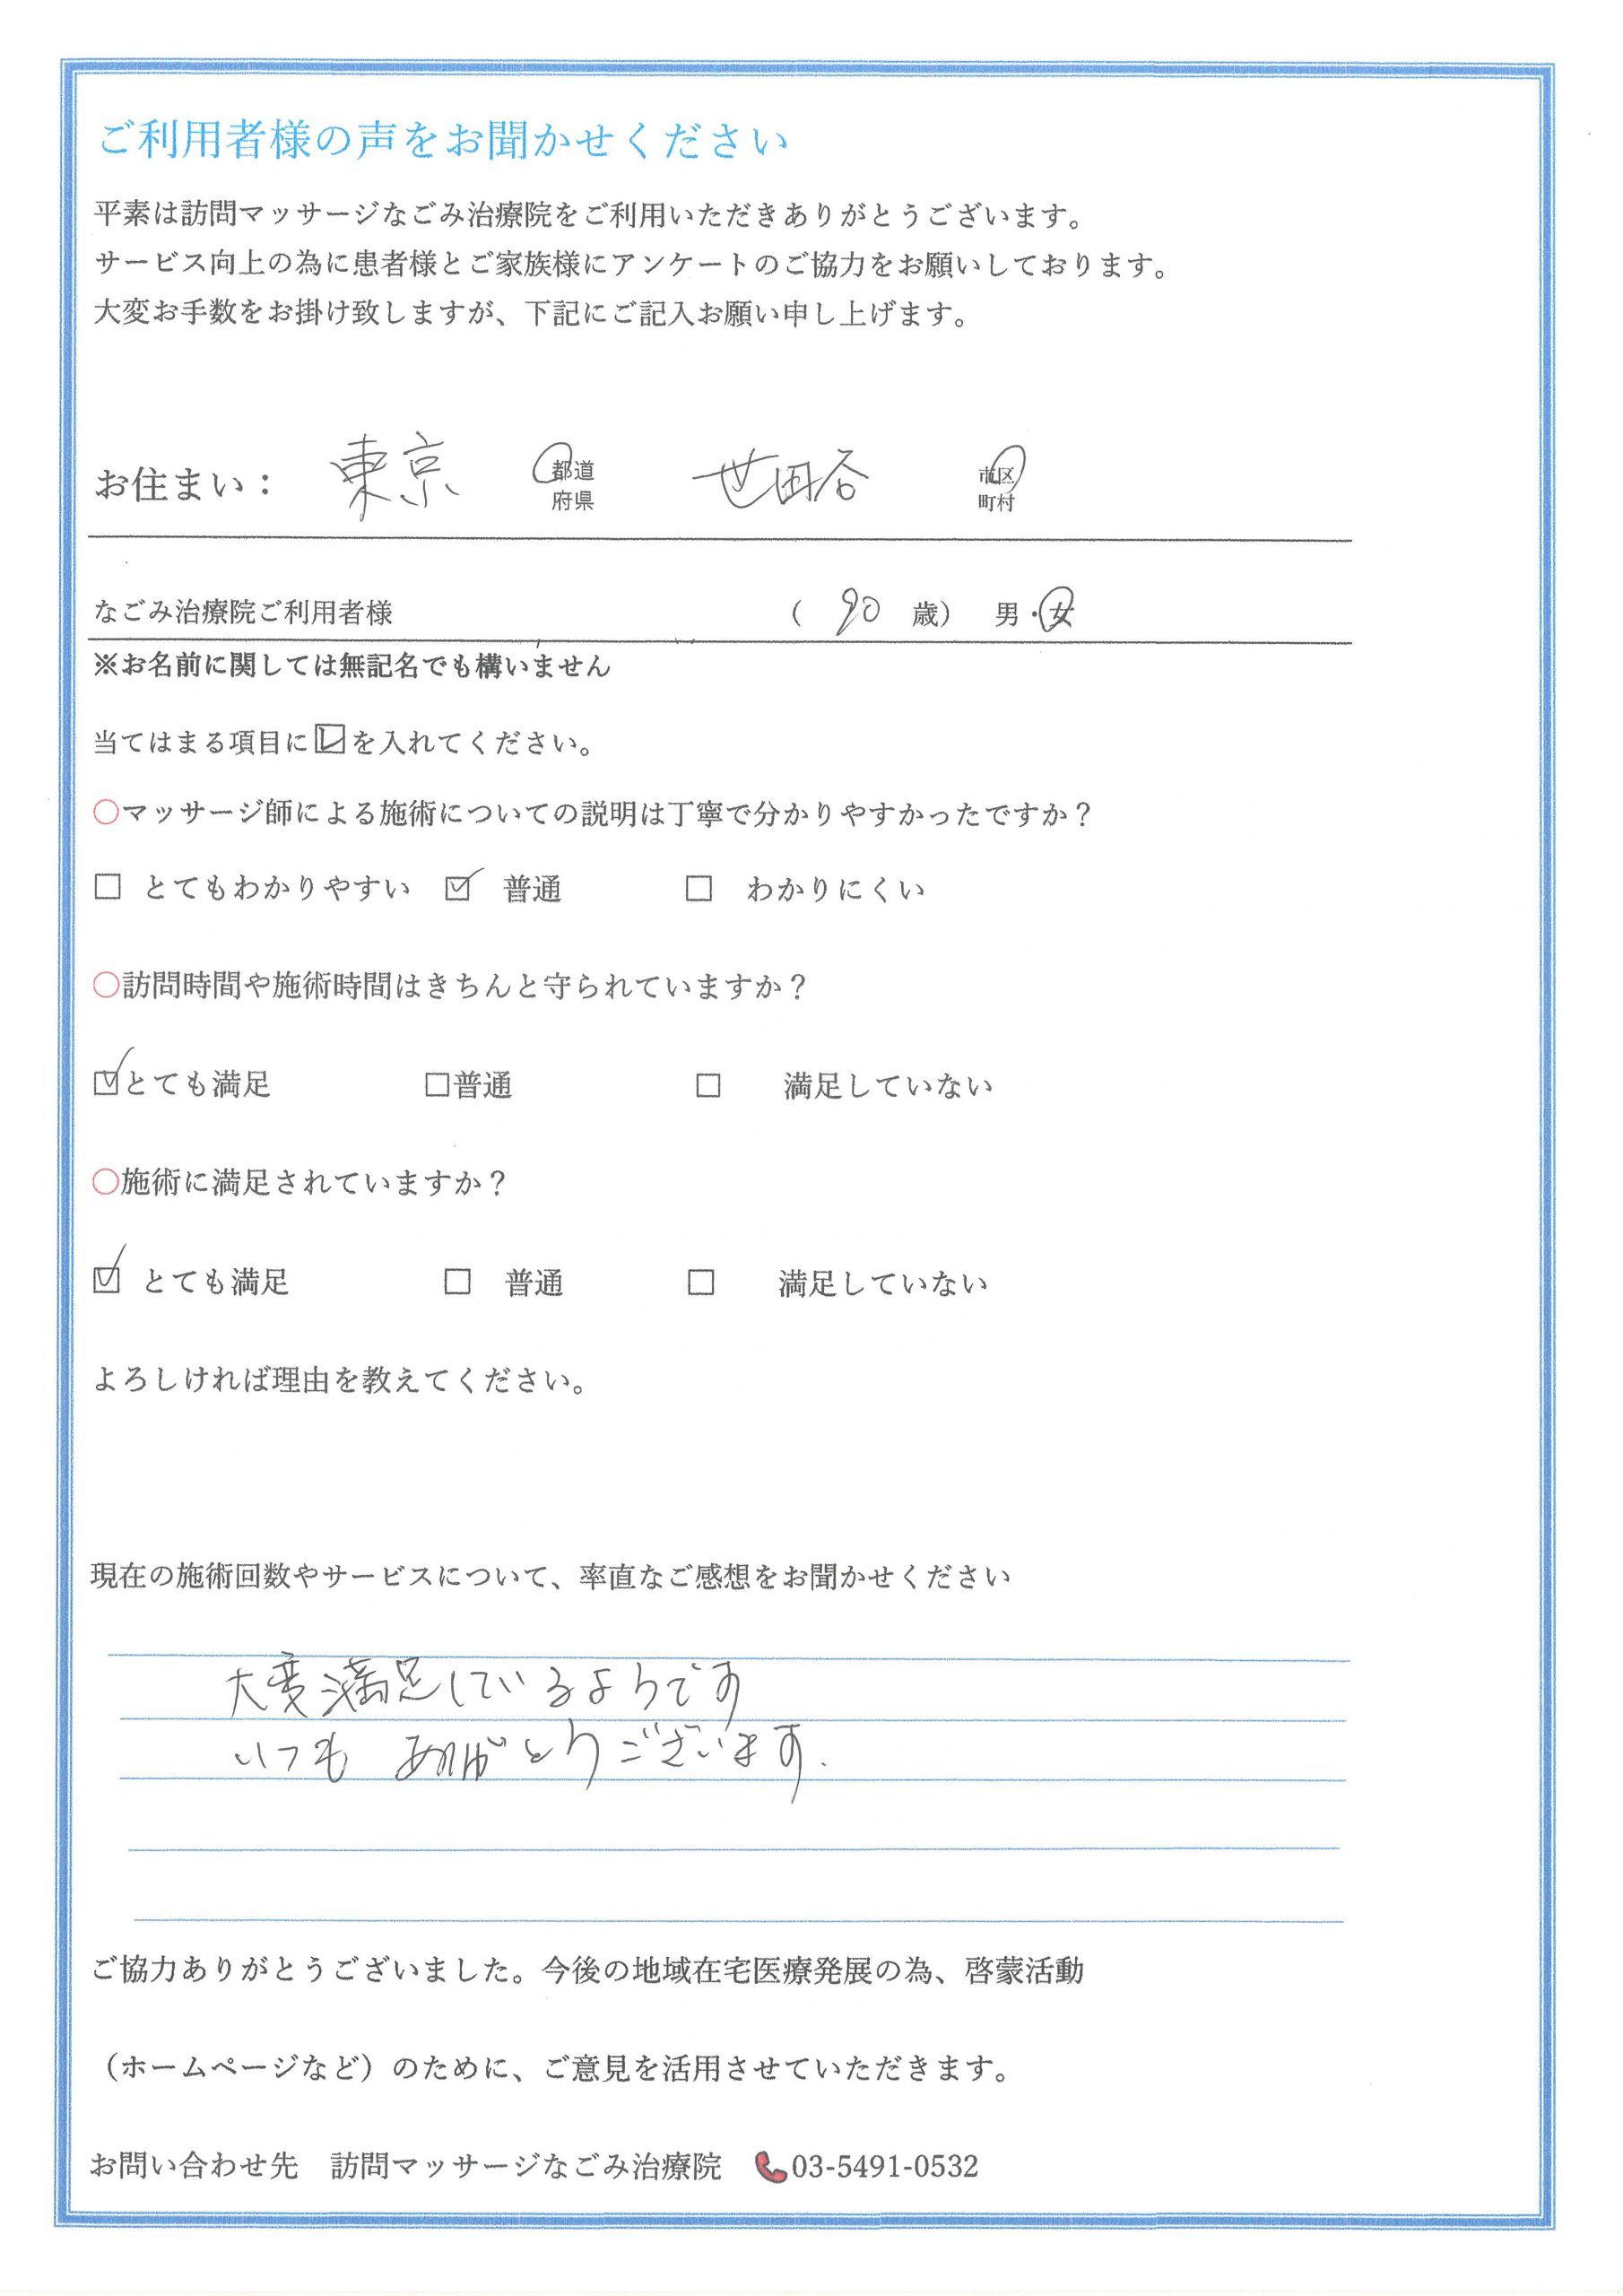 ご利用者様の声をお聞かせください
平素は訪問マッサージなごみ治療院をご利用いただきありがとうございます。
サービス向上の為に患者様とご家族様にアンケートのご協力をお願いしております。
大変お手数をお掛け致しますが、下記にご記入お願い申し上げます。
お住まい： 東京 都道府県 世田谷 市区町村
なごみ治療院ご利用者様 （ 90 歳） 男・女
※お名前に関しては無記名でも構いません
当てはまる項目に☑を入れてください。
○マッサージ師による施術についての説明は丁寧で分かりやすかったですか？
☐ とてもわかりやすい ☑ 普通 ☐ わかりにくい
○訪問時間や施術時間はきちんと守られていますか？
☑とても満足 ☐普通 ☐ 満足していない
○施術に満足されていますか？
☑ とても満足 ☐ 普通 ☐ 満足していない
よろしければ理由を教えてください。
現在の施術回数やサービスについて、率直なご感想をお聞かせください
大変満足しているようです
いつも ありがとうございます.
ご協力ありがとうございました。今後の地域在宅医療発展の為、啓蒙活動
（ホームページなど）のために、ご意見を活用させていただきます。
お問い合わせ先 訪問マッサージなごみ治療院 📞03-5491-0532